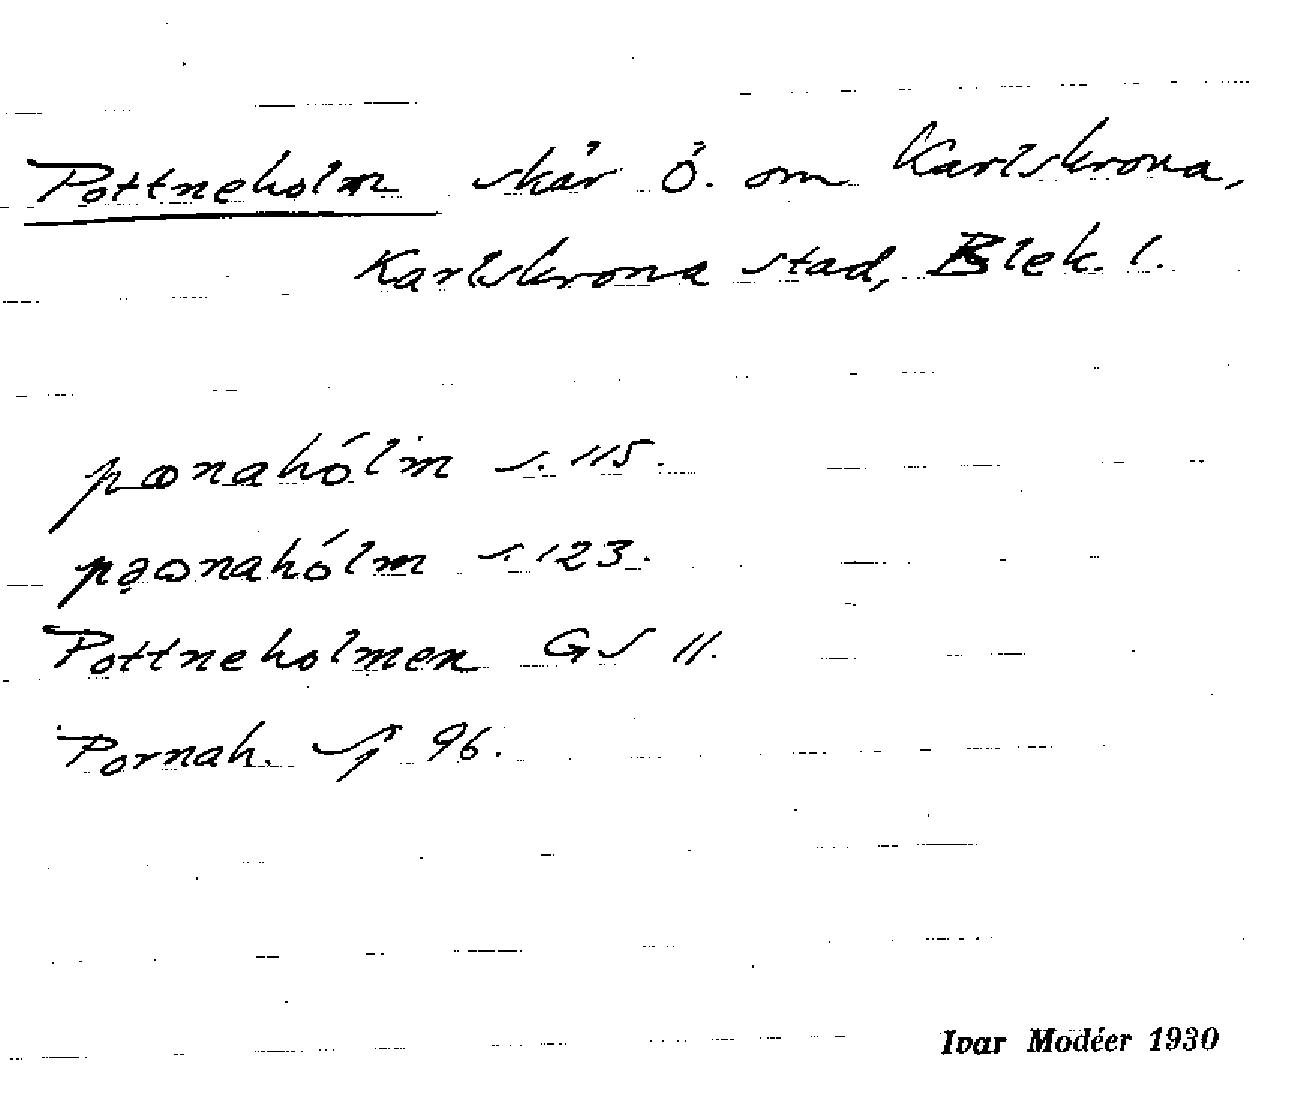 Pottneholm skär Ö. om Karlskrona,
Karlskrona stad, Blek. l.
s. 115.
s. 123.
Pottneholmen GS 11.
Pornah. 96.
Ivar Modéer 1930